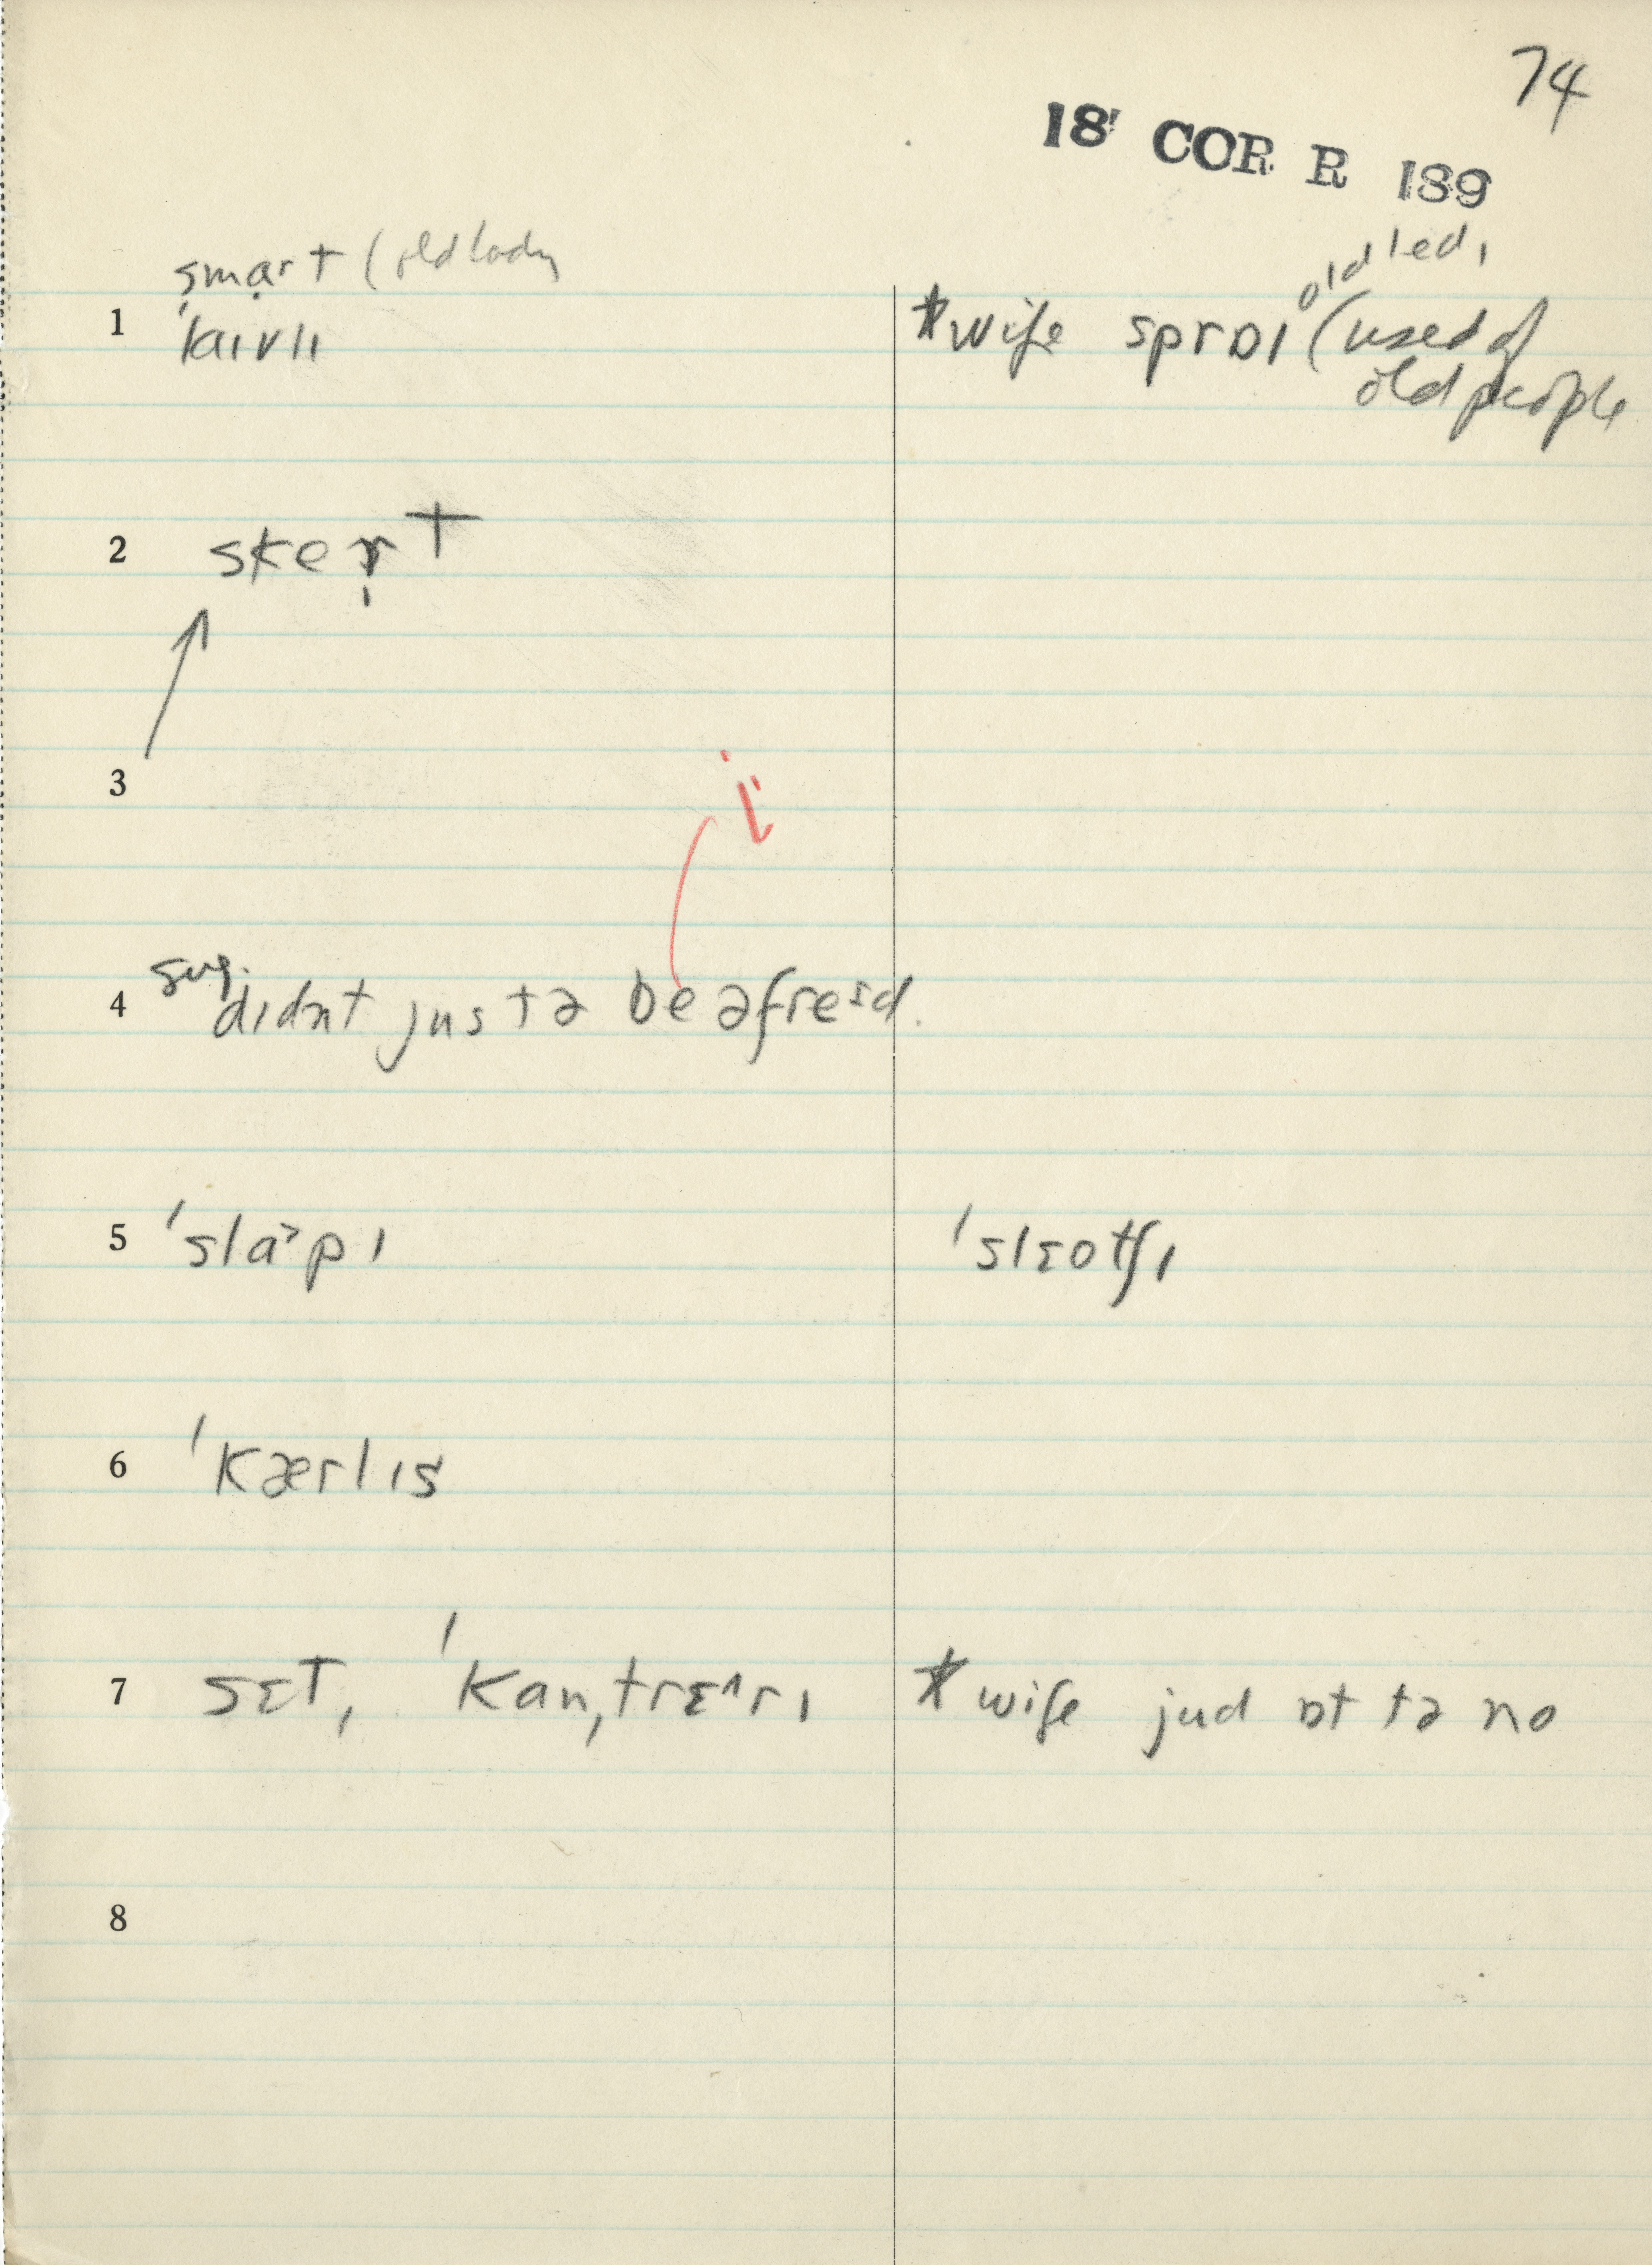 74
18 COR R 189
smart (old lady
1 ˈlaɪvlɪ
*wife sprɒɪ old ledɪ (used of
old people
2 skeɾ̩t
3
i
4 sug. dɪdnt justə be əfreɪd.
5 ˈsla˃pɪ ˈslɛotʃɪ
6 ˈkærlɪs
7 sɛt, ˈkanˌtrɛ^rɪ *wife jud ɒt tə no
8